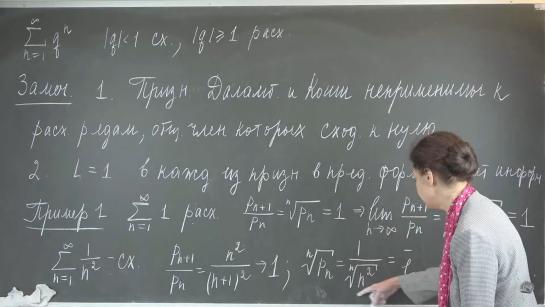 ∞ Σ n=1 qⁿ |q|<1 сх., |q|⩾1 расх.
Замеч. 1. Призн. Даламб. и Коши неприменимы к
расх. рядам, общ. член которых сход. к нулю
2. L = 1 в кажд. из призн. в пред. форм
Пример 1 ∞ Σ n=1 1 расх. pₙ₊₁/pₙ = ⁿ√pₙ = 1 ⇒ lim n→∞ pₙ₊₁/pₙ = = 1
∞ Σ n=1 1/n² - сх. pₙ₊₁/pₙ = n²/(n+1)² → 1; ⁿ√pₙ = 1/ⁿ√n² =